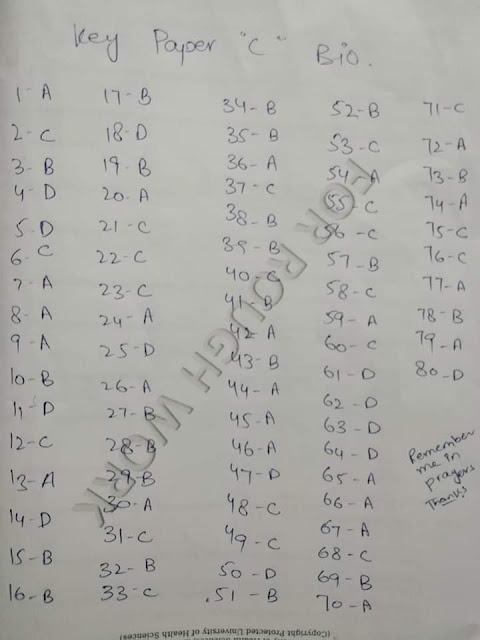 Key Paper "C" Bio.
1-A
2-C
3-B
4-D
5-D
6-C
7-A
8-A
9-A
10-B
11-D
12-C
13-A
14-D
15-B
16-B
17-B
18-D
19-B
20-A
21-C
22-C
23-C
24-A
25-D
26-A
27-B
28-B
29-B
30-A
31-C
32-B
33-C
34-B
35-B
36-A
37-C
38-B
39-B
40-C
41-B
42-A
43-B
44-A
45-A
46-A
47-D
48-C
49-C
50-D
51-B
52-B
53-C
54-A
55-C
56-C
57-B
58-C
59-A
60-C
61-D
62-D
63-D
64-D
65-A
66-A
67-A
68-C
69-B
70-A
71-C
72-A
73-B
74-A
75-C
76-C
77-A
78-B
79-A
80-D
Remember
me in
prayers
Thanks
FOR ROUGH WORK
(Copyright Protected University of Health Sciences)